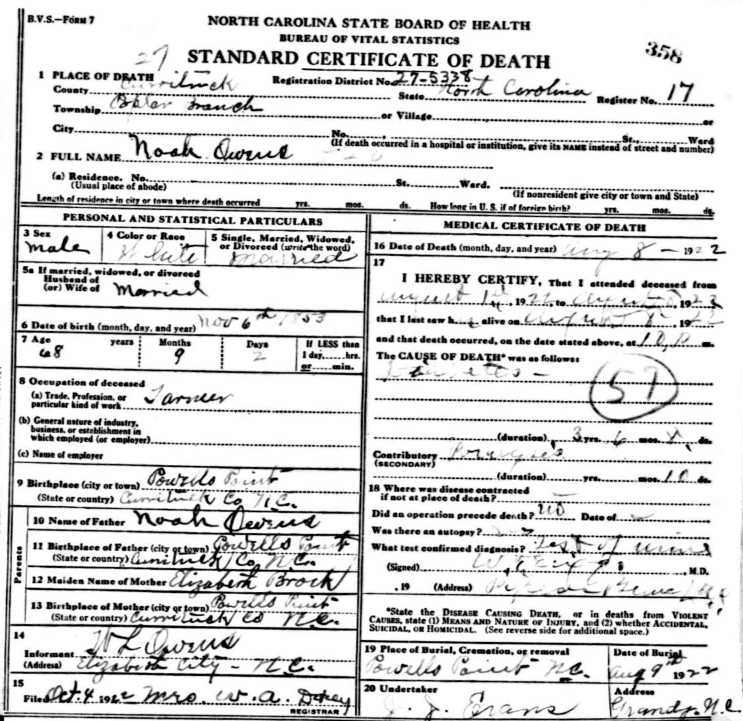 B.V.S.—FORM 7
NORTH CAROLINA STATE BOARD OF HEALTH
BUREAU OF VITAL STATISTICS
358
27
STANDARD CERTIFICATE OF DEATH
1 PLACE OF DEATH Registration District No. 27-5338
County Currituck State North Carolina Register No. 17
Township Poplar Branch or Village or
City No. St., Ward
(If death occurred in a hospital or institution, give its NAME instead of street and number)
2 FULL NAME Noah Owens
(a) Residence. No. St. Ward.
(Usual place of abode) (If nonresident give city or town and State)
Length of residence in city or town where death occurred yrs. mos. ds. How long in U. S. if of foreign birth? yrs. mos. ds.
PERSONAL AND STATISTICAL PARTICULARS
3 Sex 4 Color or Race 5 Single, Married, Widowed, or Divorced (write the word)
male White Married
5a If married, widowed, or divorced
Husband of
(or) Wife of Married
6 Date of birth (month, day, and year) Nov 6th 1853
7 Age years Months Days If LESS than
68 9 2 1 day, hrs.
or min.
8 Occupation of deceased
(a) Trade, Profession, or
particular kind of work Farmer
(b) General nature of industry,
business, or establishment in
which employed (or employer)
(c) Name of employer
9 Birthplace (city or town) Powells Point
(State or country) Currituck Co N.C.
Parents
10 Name of Father Noah Owens
11 Birthplace of Father (city or town) Powells Point
(State or country) Currituck Co, N.C.
12 Maiden Name of Mother Elizabeth Brock
13 Birthplace of Mother (city or town) Powells Point
(State or country) Currituck Co N.C.
14
Informant W L Owens
(Address) Elizabeth City - N.C.
15
Filed Oct. 4 1922 Mrs. W. A.
REGISTRAR
MEDICAL CERTIFICATE OF DEATH
16 Date of Death (month, day, and year) Aug 8 - 1922
17
I HEREBY CERTIFY, That I attended deceased from
August 1st, 19 to August 192
that I last saw h alive on August 8, 1922
and that death occurred, on the date stated above, at m.
The CAUSE OF DEATH* was as follows:
Diabetes -
57
(duration) 3 yrs. 6 mos. ds.
Contributory
(SECONDARY)
(duration) yrs. mos. 10 ds.
18 Where was disease contracted
if not at place of death?
Did an operation precede death? No Date of
Was there an autopsy?
What test confirmed diagnosis? Test of urine
(Signed) M.D.
, 19 (Address)
*State the DISEASE CAUSING DEATH, or in deaths from VIOLENT
CAUSES, state (1) MEANS AND NATURE OF INJURY, and (2) whether ACCIDENTAL,
SUICIDAL, or HOMICIDAL. (See reverse side for additional space.)
19 Place of Burial, Cremation, or removal Date of Burial
Powells Point N.C. Aug 9th 1922
20 Undertaker Address
J. J. Evans Grandy, N.C.